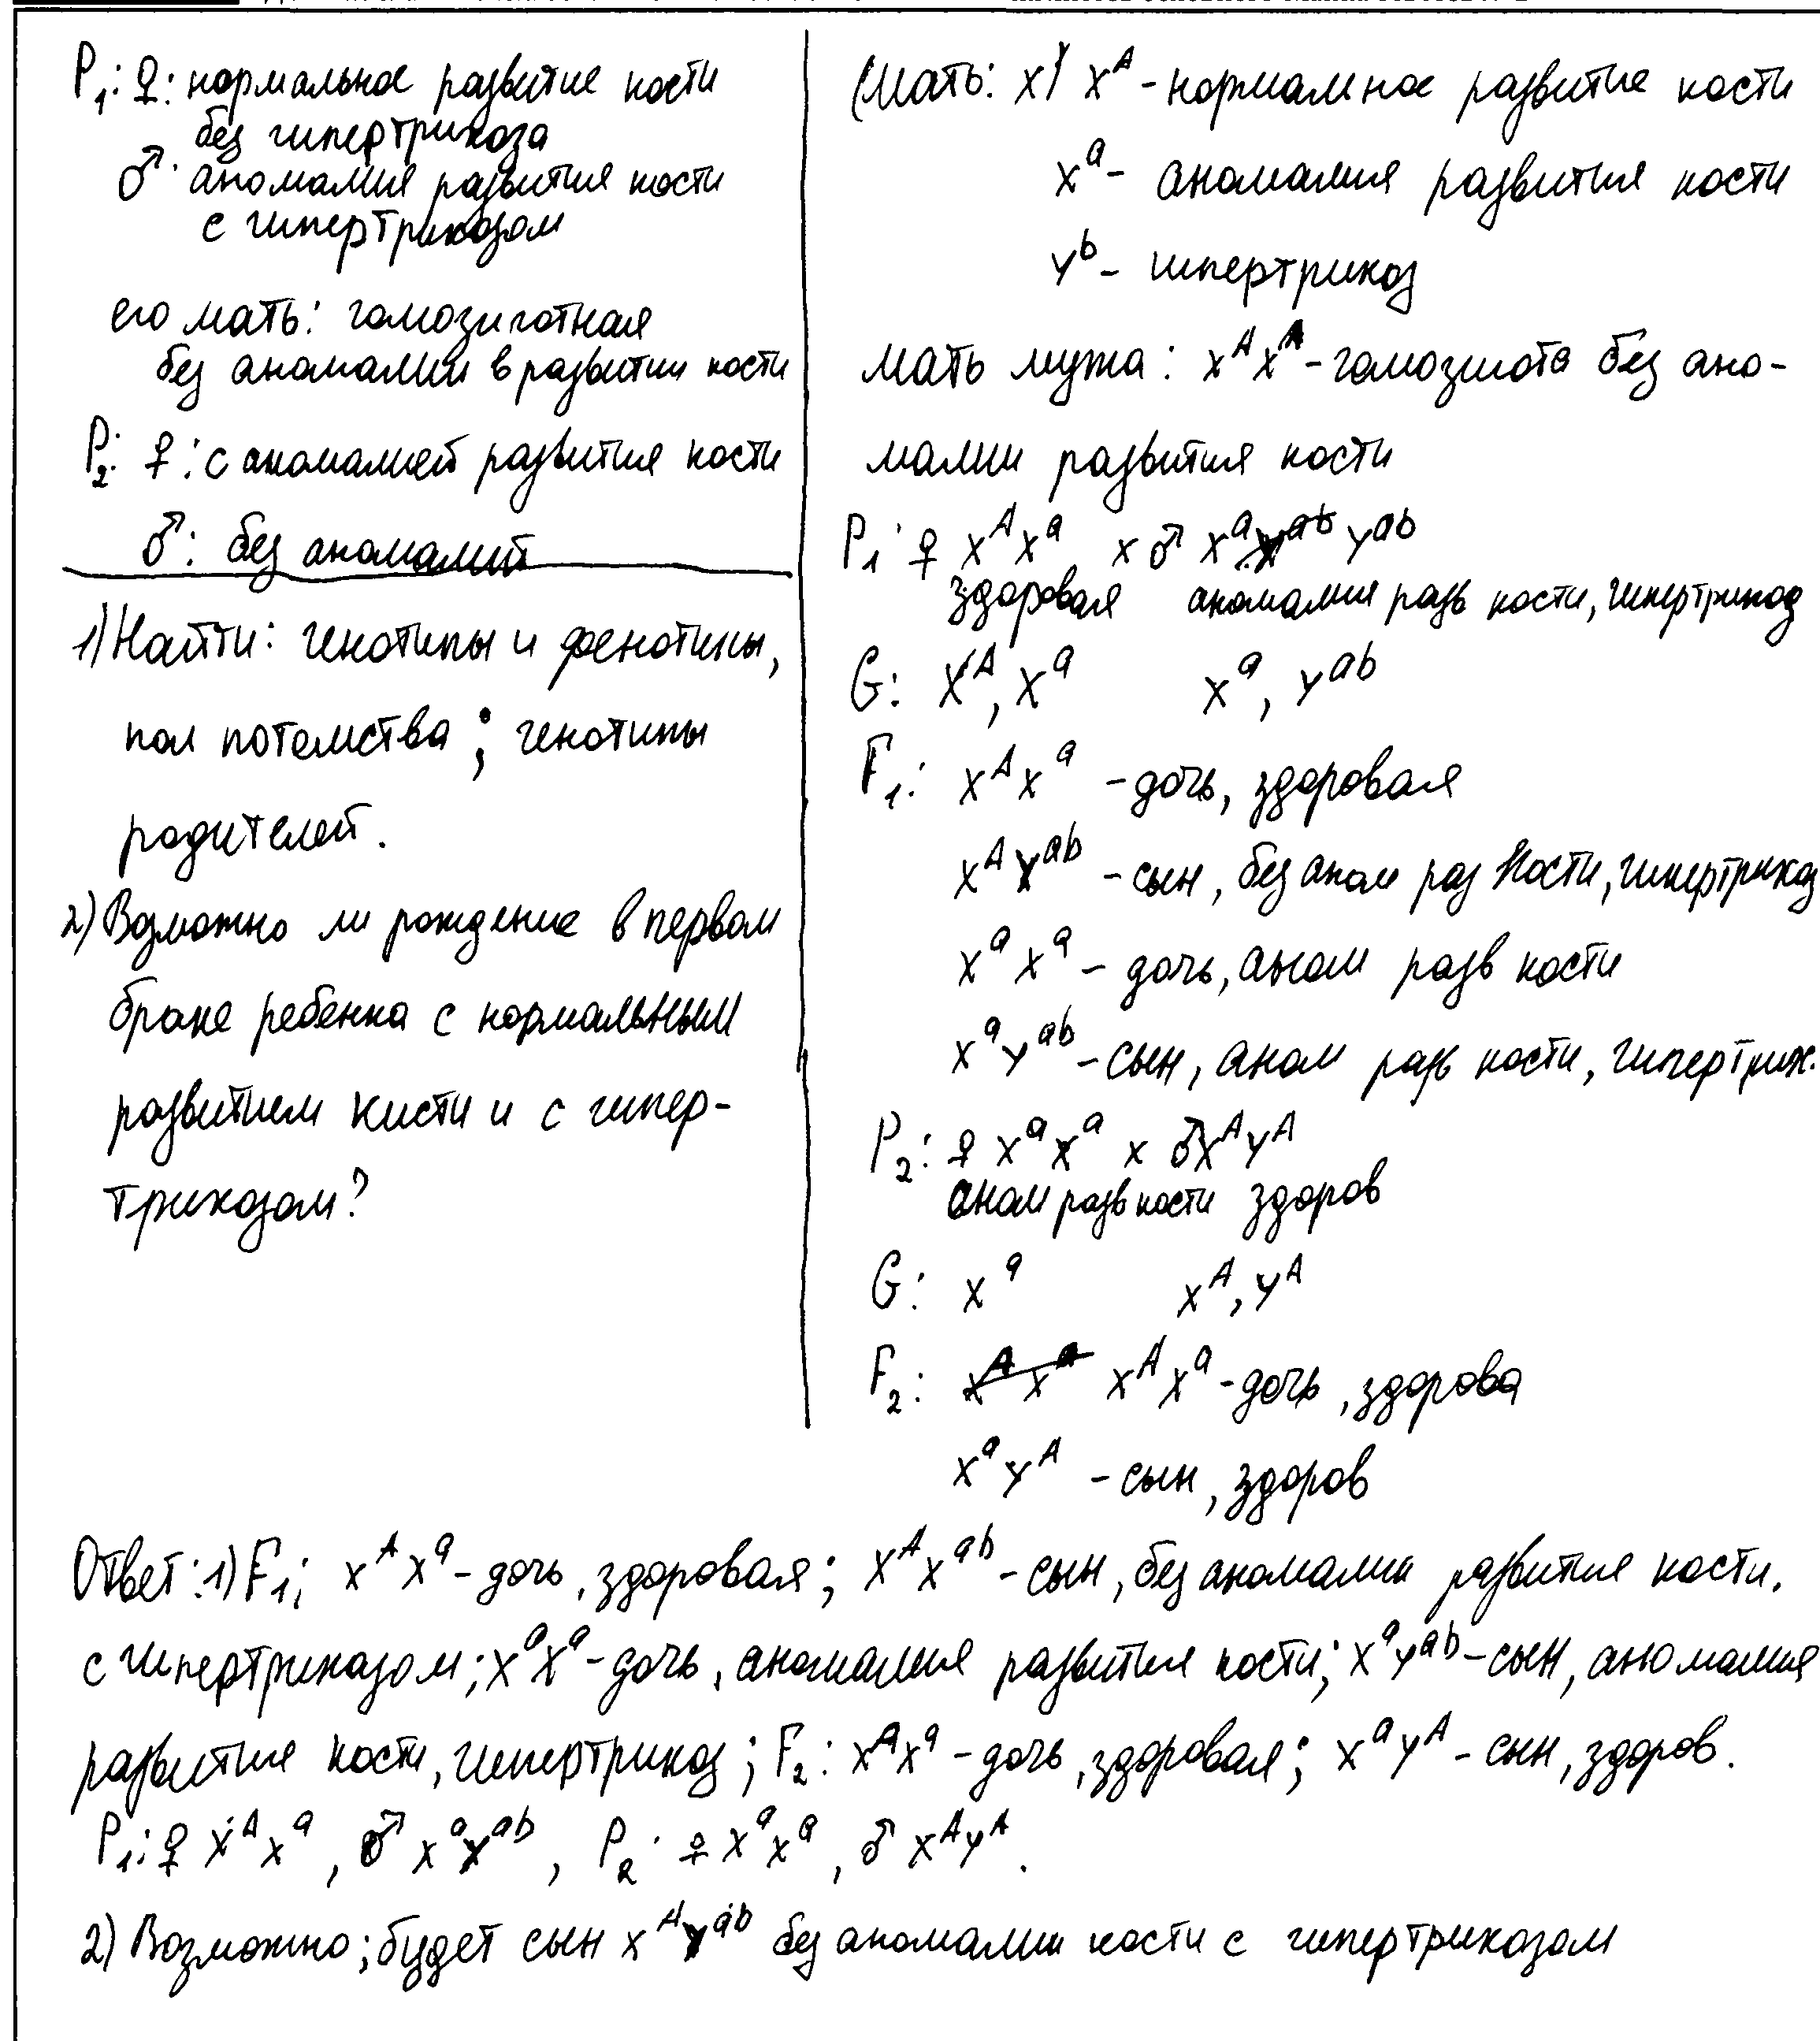 P1: ♀: нормальное развитие кости
без гипертрихоза
♂: аномалия развития кости
с гипертрихозом
его мать: гомозиготная
без аномалии в развитии кости
P2: ♀: с аномалией развития кости
♂: без аномалий
1) Найти: генотипы и фенотипы,
пол потомства; генотипы
родителей.
2) Возможно ли рождение в первом
браке ребенка с нормальным
развитием кисти и с гипер-
трихозом?
X^A - нормальное развитие кости
X^a - аномалия развития кости
Y^b - гипертрихоз
мать мужа: X^A X^A - гомозигота без ано-
малии развития кости
P1: ♀ X^A X^a x ♂ X^a Y^ab
здоровая аномалия разв кости, гипертрихоз
G: X^A, X^a X^a, Y^ab
F1: X^A X^a - дочь, здоровая
X^A Y^ab - сын, без аном раз кости, гипертрихоз
X^a X^a - дочь, аном разв кости
X^a Y^ab - сын, аном разв кости, гипертрих.
P2: ♀ X^a X^a x ♂ X^A Y^A
аном разв кости здоров
G: X^a X^A, Y^A
F2: X^A X^a - дочь, здорова
X^a Y^A - сын, здоров
Ответ: 1) F1: X^A X^a - дочь, здоровая; X^A X^ab - сын, без аномалии развития кости,
с гипертрихозом; X^a X^a - дочь, аномалия развития кости; X^a Y^ab - сын, аномалия
развития кости, гипертрихоз; F2: X^A X^a - дочь, здоровая; X^a Y^A - сын, здоров.
P1: ♀ X^A X^a, ♂ X^a Y^ab, P2: ♀ X^a X^a, ♂ X^A Y^A.
2) Возможно; будет сын X^A Y^ab без аномалии кости с гипертрихозом